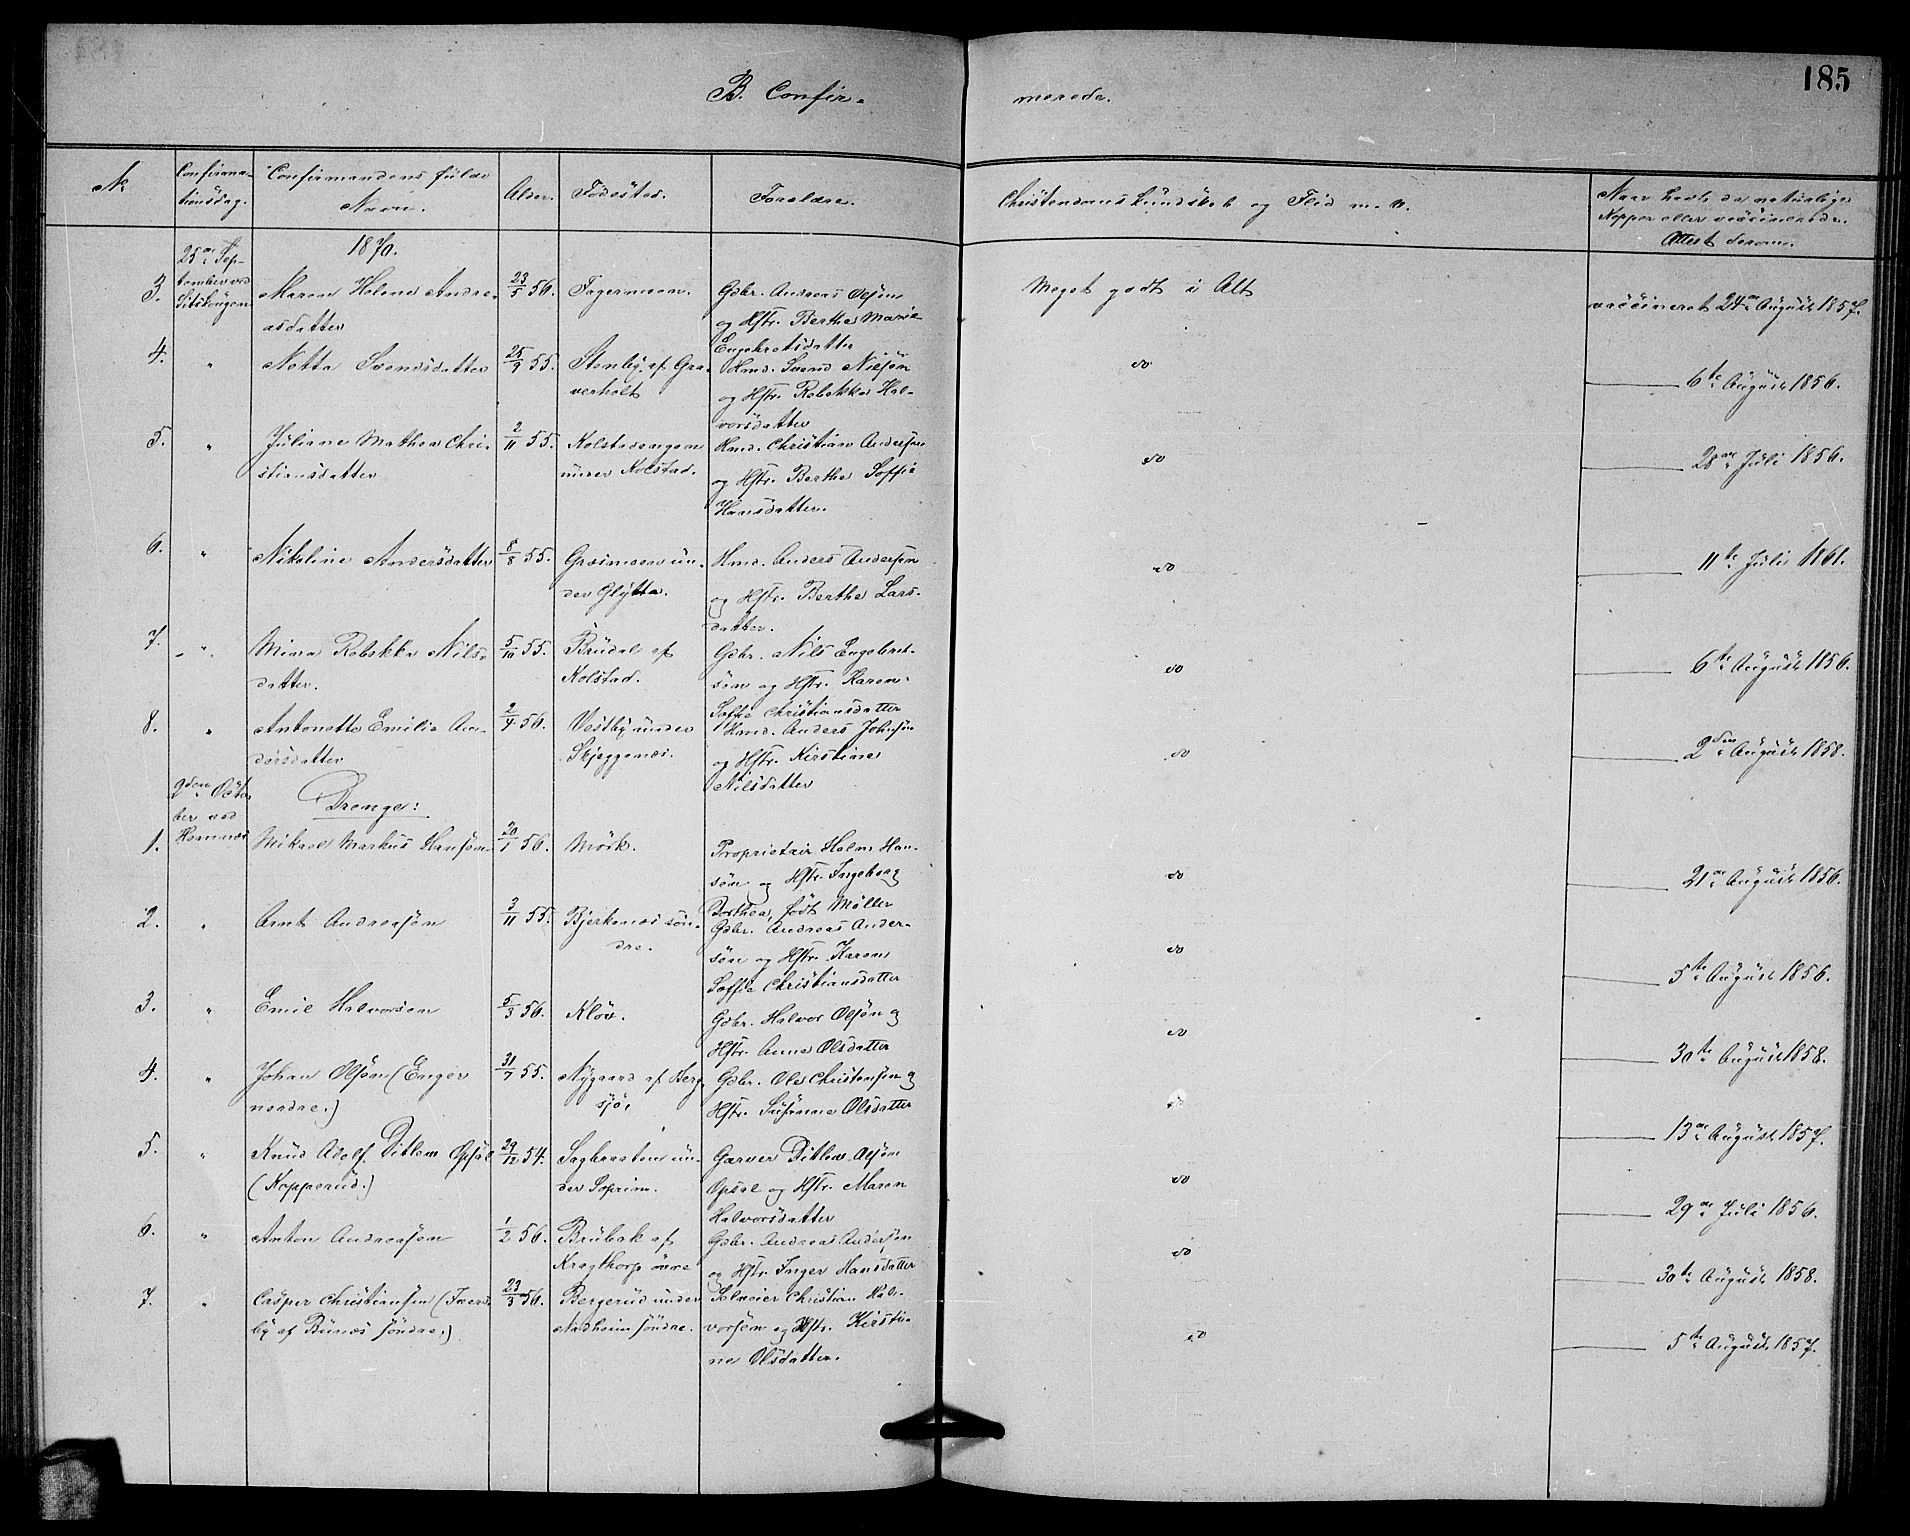 185
B. Confir-
merede.
№
Confirma-
tionsdag.
Confirmandens fulde
Navn.
Alder.
Fødested.
Forældre.
Christendomskundskab og Flid m. v.
Naar havte de naturlige
Kopper eller vaccinerede.
Attest derom.
1870.
3.
25de Sep-
tember ved
Sitskougen
Maren Helene Andre-
asdatter
23/5 56.
Fagermoen.
Gdbr. Andreas Olsøn
og Hstr. Berthe Marie
Engebretsdatter
Meget godt i Alt
vaccineret 24de August 1857.
4.
"
Netta Svendsdatter
25/9 55.
Stenby af Gra-
verholt
Hmd. Svend Nilsøn
og Hstr. Rebekka Hal-
vorsdatter
do
6te August 1856.
5.
"
Juliane Mathea Chri-
stiansdatter
2/11 55.
Kolstadengen
under Kolstad.
Hmd. Christian Andersen
og Hstr. Berthe Soffie
Hansdatter.
do
28de Juli 1856.
6.
"
Nikoline Andersdatter
8/8 55.
Græsmoen un-
der Glytta.
Hmd. Anders Andersen
og Hstr. Berthe Lars-
datter.
do
11te Juli 1861.
7.
"
Mina Rebekka Nils-
datter.
5/10 55.
Brudal af
Kolstad.
Gdbr. Nils Engebret-
søn og Hstr. Karen
Soffie Christiansdatter
do
6te August 1856.
8.
"
Antonette Emilie An-
dersdatter
2/4 56.
Vestby under
Skjeggenæs.
Hmd. Anders Johnsøn
og Hstr. Kirstine
Nilsdatter
do
2den August 1858.
9den Octo-
ber ved
Hemnæs
Drenge:
1.
Mikael Markus Hansen
20/1 56.
Mørk.
Proprietair Halm Han-
søn og Hstr. Ingeborg
Dorthea, født Møller
do
21de August 1856.
2.
"
Arnt Andreasøn
3/11 55.
Bjerkenæs søn-
dre.
Gdbr. Andreas Ander-
søn og Hstr. Karen
Soffie Christiansdatter
do
5te August 1856.
3.
"
Emil Halvorsen
5/3 56.
Kløv.
Gdbr. Halvor Olsøn og
Hstr. Anne Olsdatter
do
30te August 1858.
4.
"
Johan Olsøn (Enger
nordre.)
31/7 55.
Nygaard af Berg-
sjø.
Gdbr. Ole Christensen og
Hstr. Susanne Olsdatter
do
13de August 1857.
5.
"
Knud Adolf Ditlew Opsal
(Kopperud.)
29/12 54.
Sagbraaten un-
der Soprim.
Garver Ditlew Olsøn
Opsal og Hstr. Maren
Halvorsdatter
do
29de Juli 1856.
6.
"
Anton Andreasøn
1/2 56.
Brubak af
Kragthorp øvre
Gdbr. Andreas Andersøn
og Hstr. Inger Hansdatter
do
30te August 1858.
7.
"
Casper Christiansen (Tvers-
by af Bunæs søndre.)
23/3 56.
Bergerud under
Nadheim søndre.
Selveier Christian Hal-
vorsen og Hstr. Kirsti-
ne Olsdatter.
do
5te August 1857.